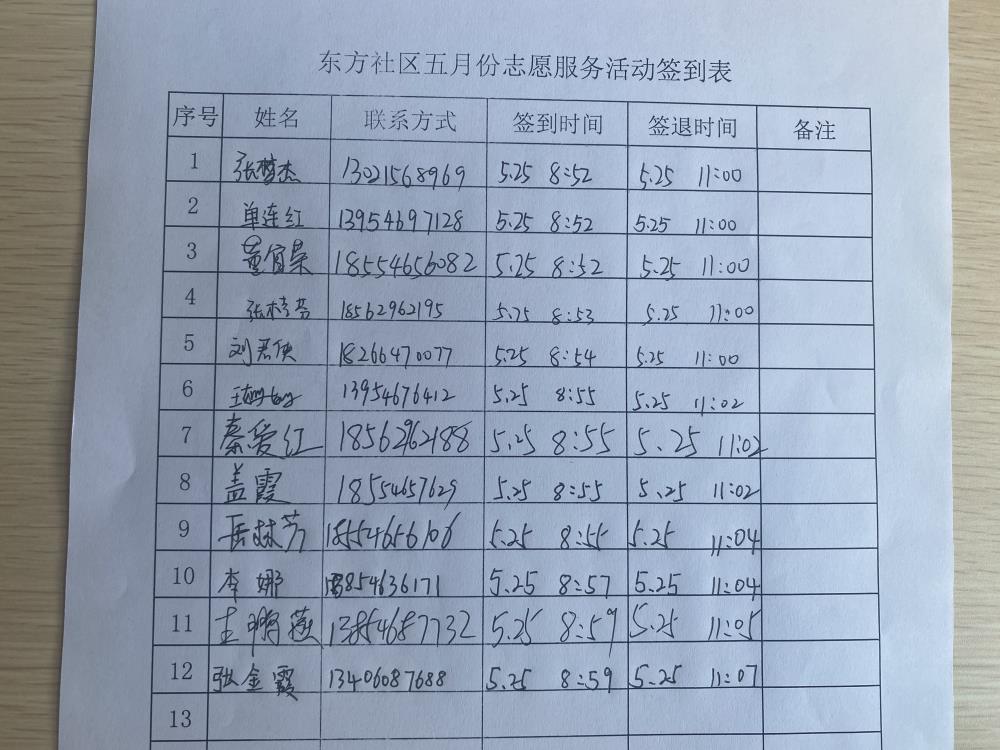 东方社区五月份志愿服务活动签到表
序号 姓名 联系方式 签到时间 签退时间 备注
1 张梦杰 13021568969 5.25 8:52 5.25 11:00
2 单连红 13954697128 5.25 8:52 5.25 11:00
3 董宜荣 18554656082 5.25 8:52 5.25 11:00
4 张桂芬 18562962195 5.25 8:53 5.25 11:00
5 刘君侠 18266470077 5.25 8:54 5.25 11:00
6 13954676412 5.25 8:55 5.25 11:02
7 秦爱红 18562962188 5.25 8:55 5.25 11:02
8 盖霞 18554657629 5.25 8:55 5.25 11:02
9 岳林芳 18554656106 5.25 8:55 5.25 11:04
10 李娜 5.25 8:57 5.25 11:04
11 王鹏莲 13854687732 5.25 8:59 5.25 11:05
12 张金霞 13406087688 5.25 8:59 5.25 11:07
13